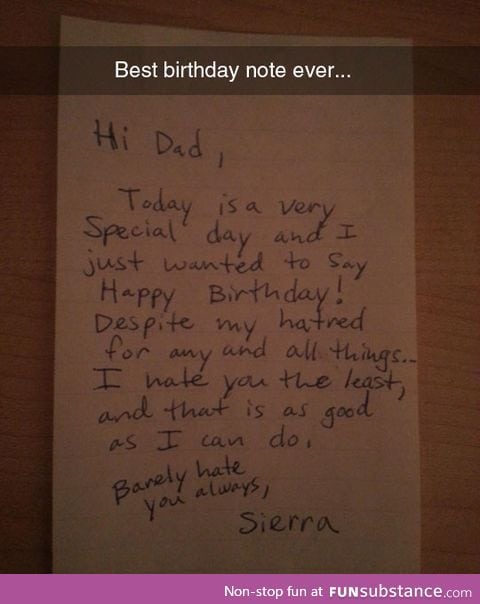 Best birthday note ever...
Hi Dad,
Today is a very
Special day and I
just wanted to say
Happy Birthday!
Despite my hatred
for any and all things...
I hate you the least,
and that is as good
as I can do.
Barely hate
you always,
Sierra
Non-stop fun at FUNsubstance.com